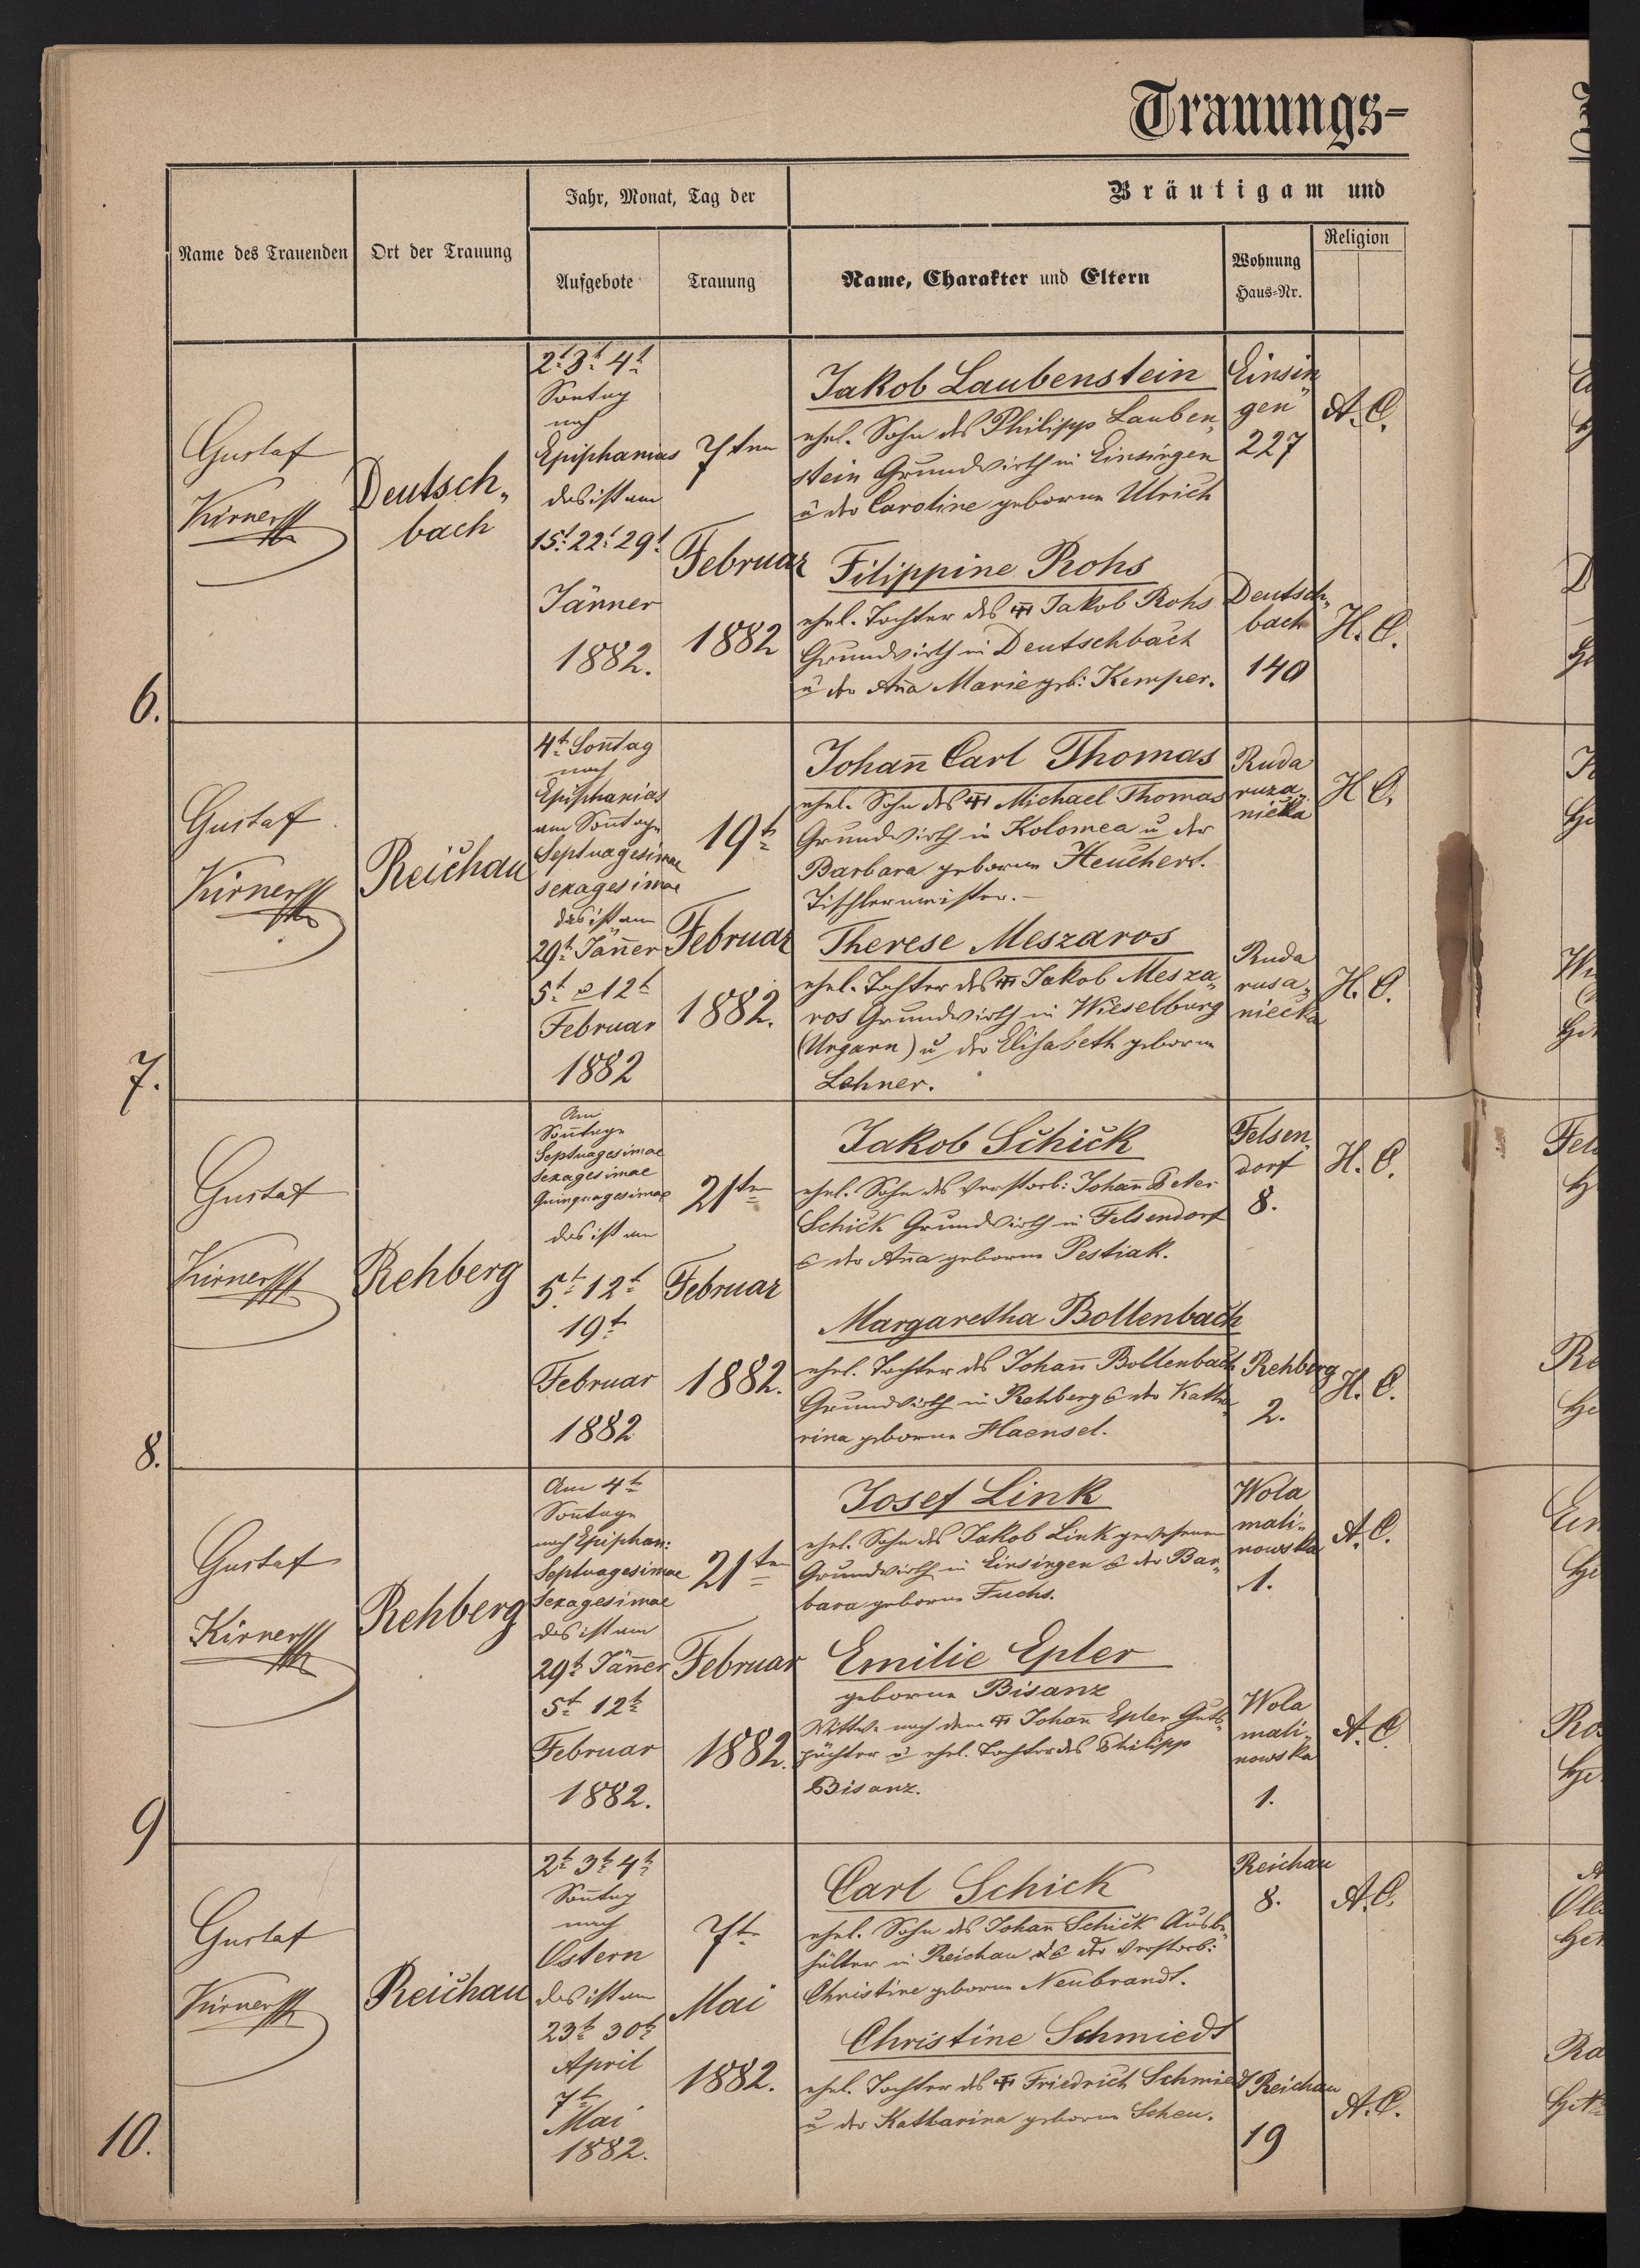 Trauungs-
Name des Trauenden
Ort der Trauung
Jahr, Monat, Tag der
Aufgebote
Trauung
Bräutigam und
Name, Charakter und Eltern
Wohnung
Haus-Nr.
Religion
6.
Gustaf
Kirner
Deutsch„
bach
2t 3t 4t
Sontag
nach
Epiphanias
das ist am
15t 22t 29t
Jänner
1882.
7ten
Februar
1882
Jakob Laubenstein
ehel. Sohn des Philipp Lauben„
stein Grundwirth in Einsingen
u der Caroline geborene Ulrich
Einsin„
gen
227
A. C.
Filippine Rohs
ehel. Tochter des Jakob Rohs
Grundwirth in Deutschbach
u der Ana Marie geb: Kemper.
Deutsch„
bach
140
H. C.
7.
Gustaf
Kirner
Reichau
4t Sontag
nach
Epiphanias
am Sontage
Septuagesimae
sexagesimae
das ist am
29t Jäner
5t 12t
Februar
1882
19t
Februar
1882.
Johañ Carl Thomas
ehel. Sohn des Michael Thomas
Grundwirth in Kolomea u der
Barbara geborene Heuchert.
Tischlermeister.–
Ruda
ruza„
niecka
H C.
Therese Meszaros
ehel. Tochter des Jakob Mesza„
ros Grundwirth in Wieselburg
(Ungarn) u der Elisabeth geborene
Lehner.
Ruda
rusa„
niecka
H. C.
8.
Gustaf
Kirner
Rehberg
Am
Sontage
Septuagesimae
sexagesimae
Quinquagesimae
das ist am
5t 12t
19t
Februar
1882
21ten
Februar
1882.
Jakob Schick
ehel. Sohn des verstorb: Johañ Peter
Schick Grundwirth in Felsendorf
& der Aña geborene Pestiak.
Felsen„
dorf
8.
H. C.
Margaretha Bollenbach
ehel. Tochter des Johañ Bollenbach
Grundwirth in Rehberg & der Katha„
rina geborene Haensel.
Rehberg
2.
H. C.
9
Gustaf
Kirner
Rehberg
Am 4t
Sontage
nach Epiphan:
Septuagesimae
Sexagesimae
das ist am
29t Jäner
5t 12t
Februar
1882.
21ten
Februar
1882.
Josef Link
ehel. Sohn des Jakob Link gewesenen
Grundwirth in Einsingen & der Bar„
bara geborene Fuchs.
Wola
mali„
nowska
1.
A. C.
Emilie Epler
geborene Bisanz
Wittwe nach dem Johañ Epler Guts„
pächter u ehel. Tochter des Philipp
Bisanz.
Wola
mali„
nowska
1.
A. C
10.
Gustaf
Kirner
Reichau
2t 3t 4t
Sontag
nach
Ostern
das ist am
23t 30t
April
7t
Mai
1882.
7te
Mai
1882.
Carl Schick
ehel. Sohn des Johan Schick Ausbe„
hälter in Reichau & der verstorb:
Christine geborene Neubrandt.
Reichau
8.
A. C.
Christine Schmiedt
ehel. Tochter des Friedrich Schmiedt
u der Katharina geborene Scheu.
Reichau
19
A. C.